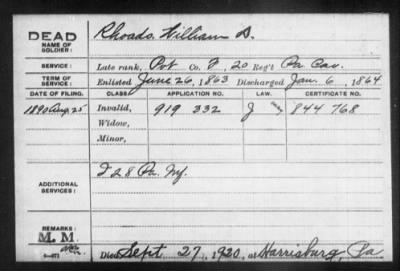 DEAD
NAME OF SOLDIER:
Rhoads, William D.
SERVICE:
Late rank, Pvt Co. F, 20 Reg't Pa Cav.
TERM OF SERVICE:
Enlisted June 26, 1863 Discharged Jan. 6, 1864
DATE OF FILING. CLASS. APPLICATION NO. LAW. CERTIFICATE NO.
1890 Aug. 25 Invalid, 919 332 J 844 768
Widow,
Minor,
ADDITIONAL SERVICES:
I 28 Pa Mf.
REMARKS:
M. M.
Died Sept 27, 1920, at Harrisburg, Pa